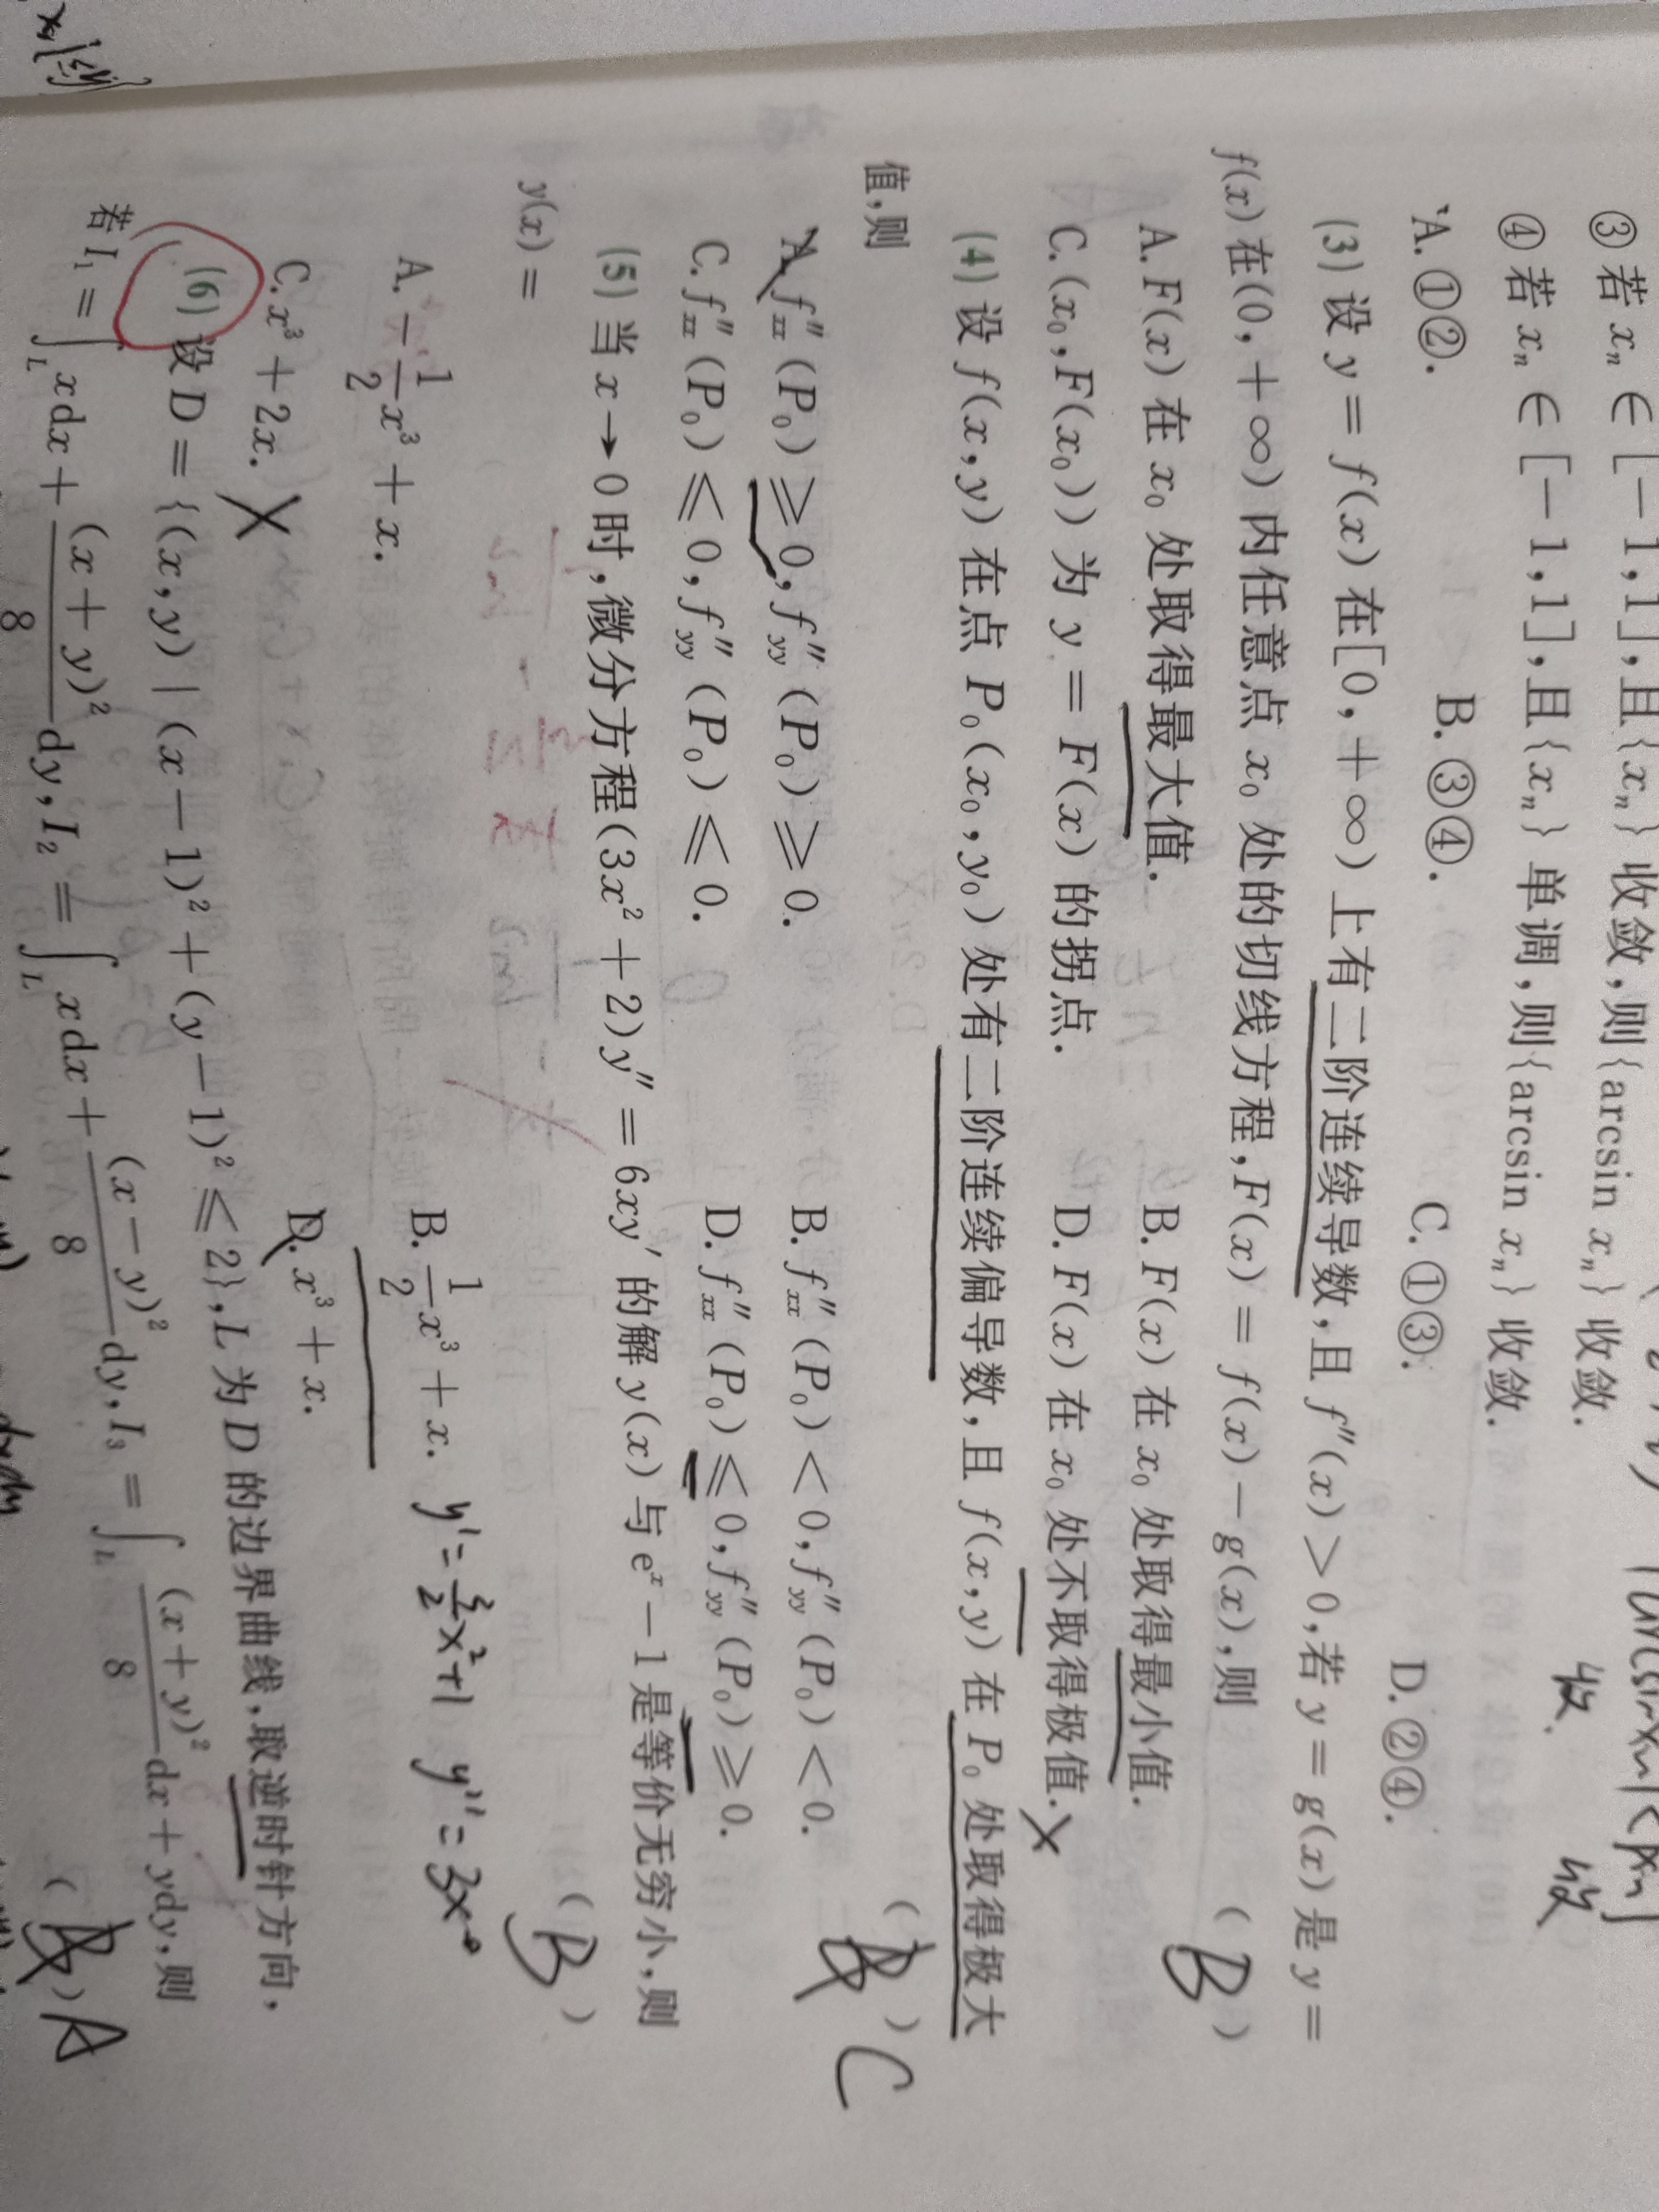 ③ 若 xₙ ∈ [−1,1],且{xₙ} 收敛,则{arcsin xₙ} 收敛.
④ 若 xₙ ∈ [−1,1],且{xₙ} 单调,则{arcsin xₙ} 收敛.
收 收
A. ①②. B. ③④. C. ①③. D. ②④.
(3) 设 y = f(x) 在[0,+∞) 上有二阶连续导数,且 f″(x) > 0,若 y = g(x) 是 y =
f(x) 在(0,+∞) 内任意点 x₀ 处的切线方程,F(x) = f(x) − g(x),则 ( B )
A. F(x) 在 x₀ 处取得最大值. B. F(x) 在 x₀ 处取得最小值.
C. (x₀,F(x₀)) 为 y = F(x) 的拐点. D. F(x) 在 x₀ 处不取得极值. ×
(4) 设 f(x,y) 在点 P₀(x₀,y₀) 处有二阶连续偏导数,且 f(x,y) 在 P₀ 处取得极大
值,则 ( ) C
A. f″ₓₓ(P₀) ≥ 0,f″ᵧᵧ(P₀) ≥ 0. B. f″ₓₓ(P₀) < 0,f″ᵧᵧ(P₀) < 0.
C. f″ₓₓ(P₀) ≤ 0,f″ᵧᵧ(P₀) ≤ 0. D. f″ₓₓ(P₀) ≤ 0,f″ᵧᵧ(P₀) ≥ 0.
(5) 当 x → 0 时,微分方程(3x² + 2)y″ = 6xy′ 的解 y(x) 与 eˣ − 1 是等价无穷小,则
y(x) = ( B )
A. −1/2 x³ + x. B. 1/2 x³ + x. y′ = 3/2 x² + 1 y″ = 3x
C. x³ + 2x. × D. x³ + x.
(6) 设 D = {(x,y) | (x − 1)² + (y − 1)² ≤ 2},L 为 D 的边界曲线,取逆时针方向,
若 I₁ = ∫_L xdx + (x + y)²/8 dy,I₂ = ∫_L xdx + (x − y)²/8 dy,I₃ = ∫_L (x + y)²/8 dx + ydy,则 ( ) A